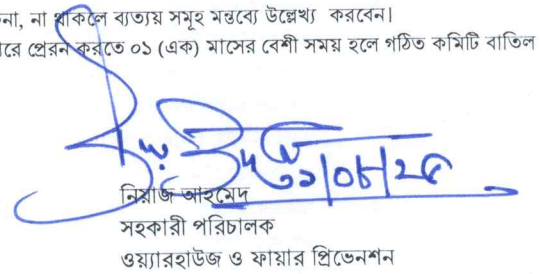 না, না থাকলে ব্যত্যয় সমূহ মন্তব্যে উল্লেখ্য করবেন।
রে প্রেরন করতে ০১ (এক) মাসের বেশী সময় হলে গঠিত কমিটি বাতিল
নিয়াজ আহমেদ
সহকারী পরিচালক
ওয়্যারহাউজ ও ফায়ার প্রিভেনশন